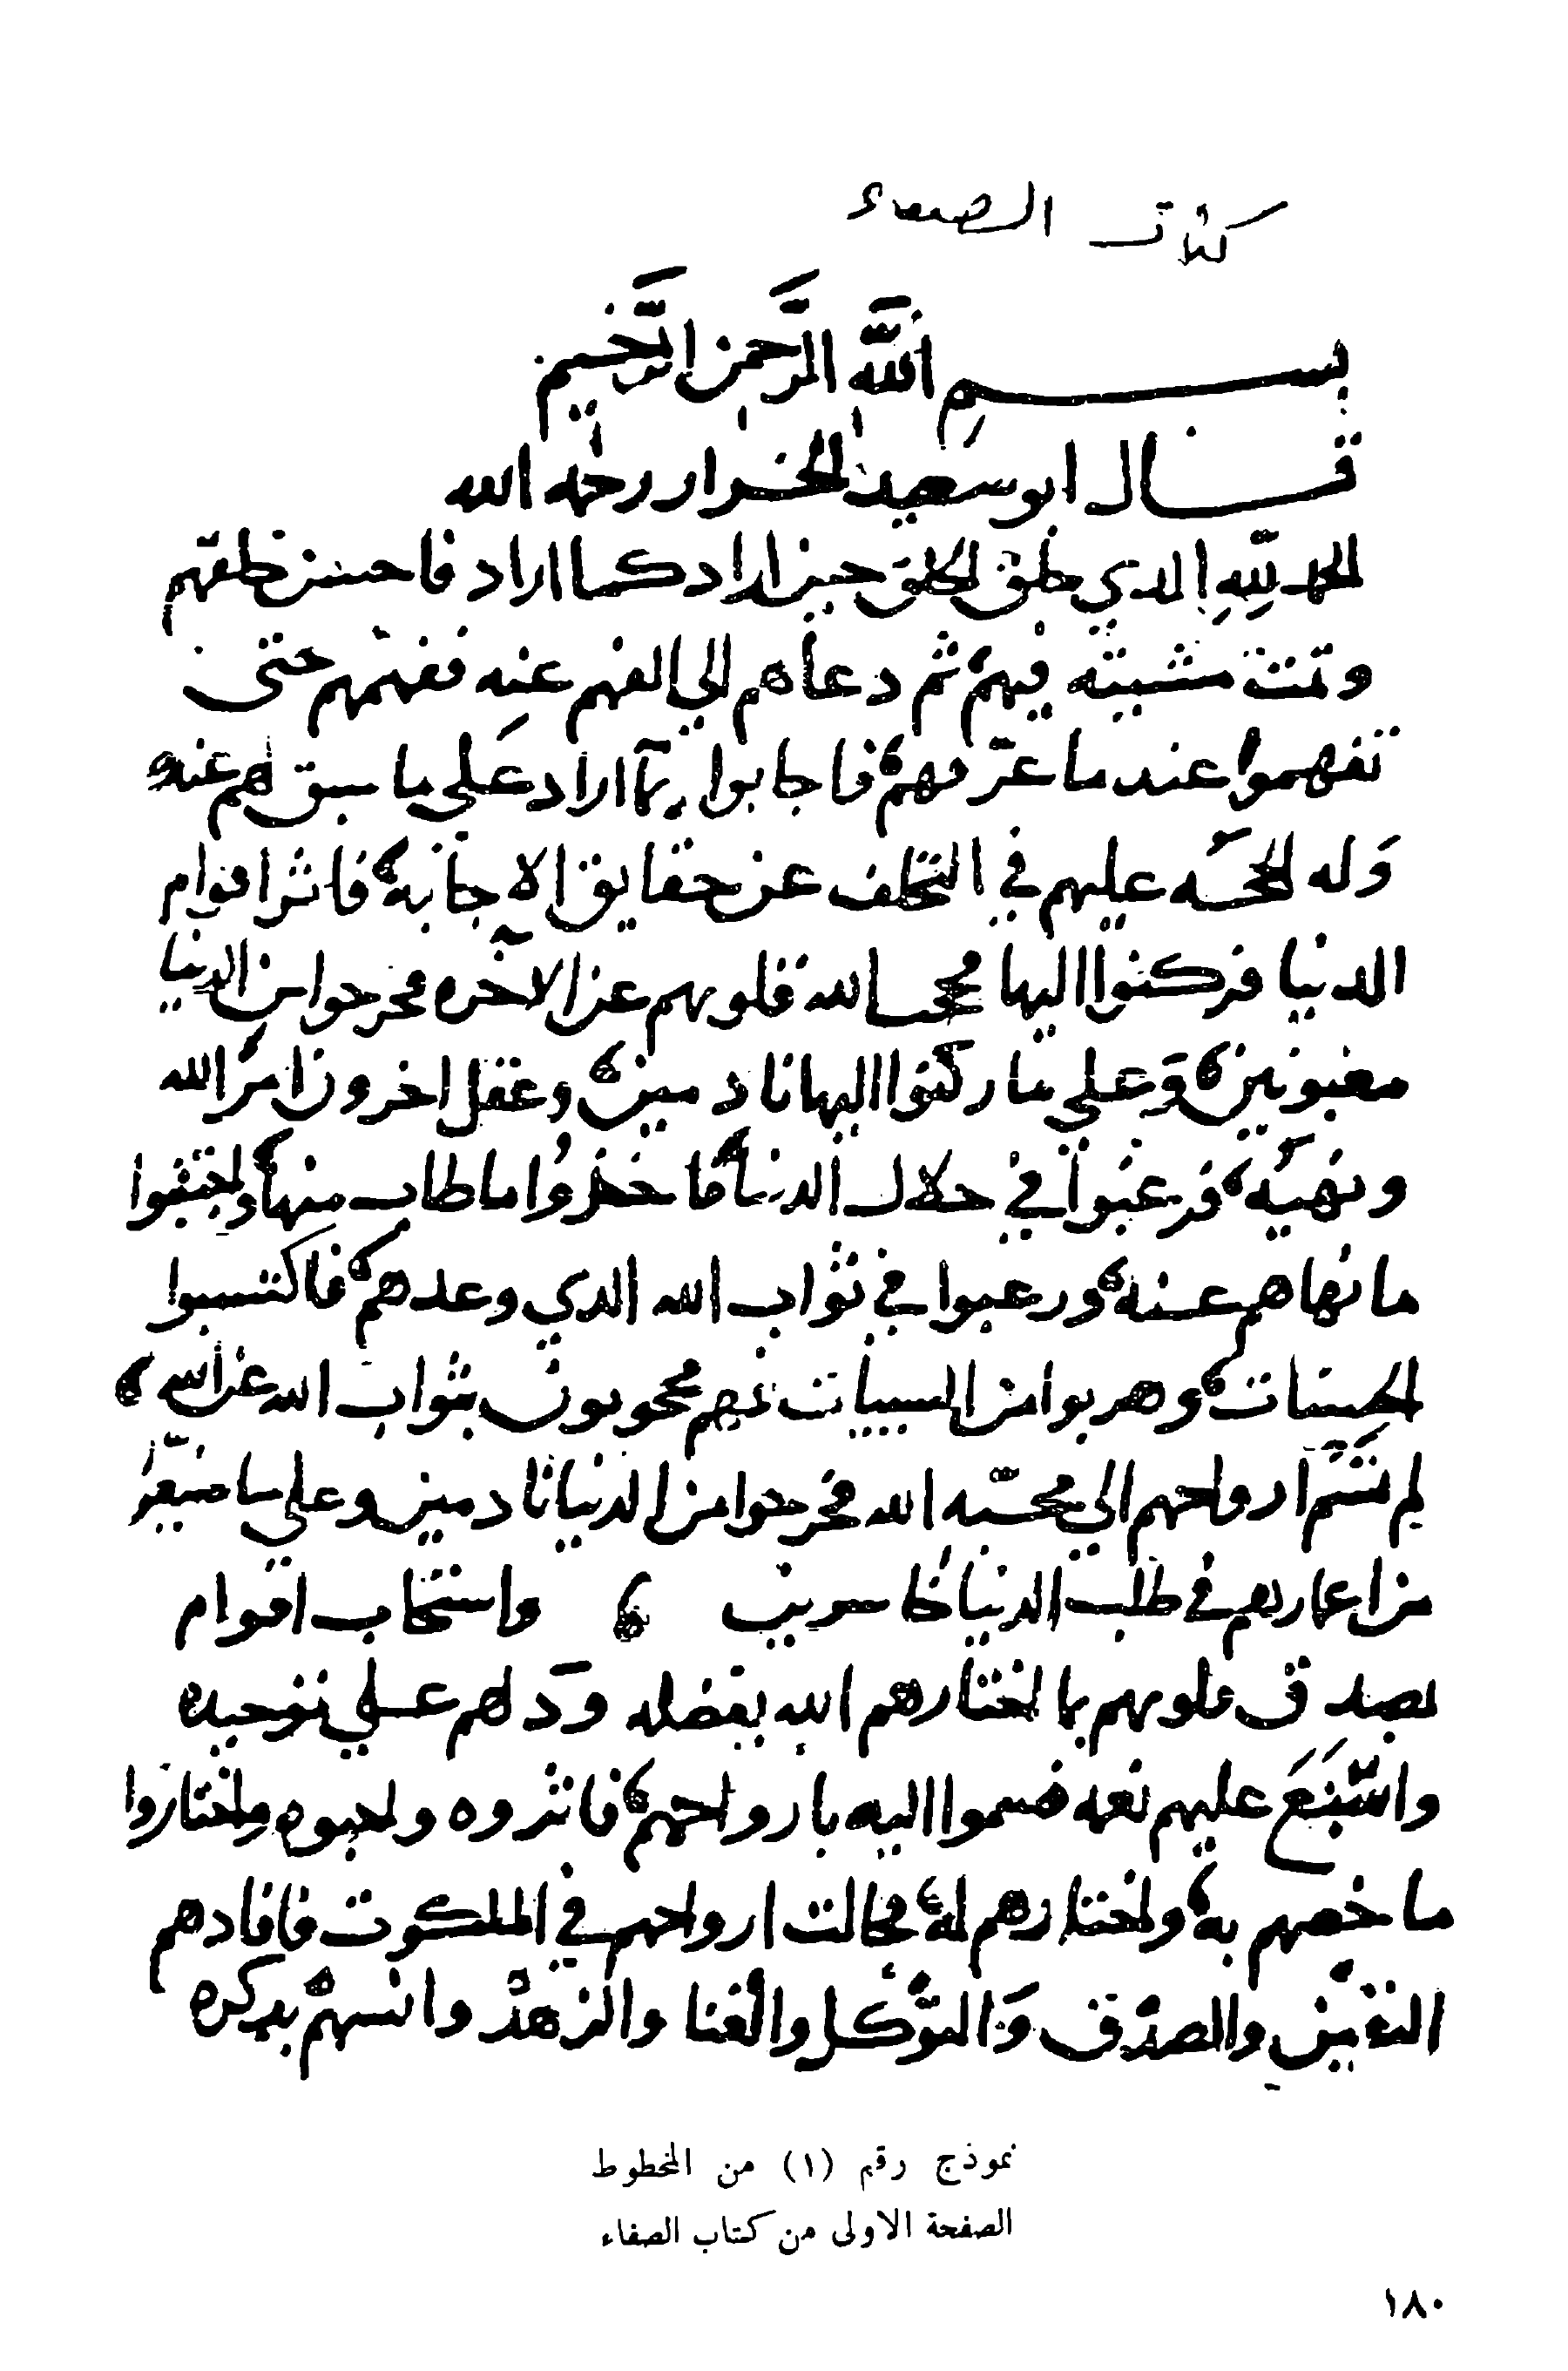 كتاب الصفاء
بسم الله الرحمن الرحيم
قال ابو سعيد الخراز رحمه الله
الحمد لله الذي خلق الخلق حين اراد كما اراد فاحسن خلقهم
وتمت مشيته فيهم ثم دعاهم الي الفهم عنه ففهمهم حتى
تفهموا عند ما عرّفهم فاجابوا بما اراد علي ما سبق لهم عنده
وله الحجه عليهم في التخلف عن حقايق الاجابة فاثر اقوام
الدنيا فركنوا اليها فحجب الله قلوبهم عن الآخره فخرجوا من الدنيا
مغبونين وعلي ما ركنوا اليها نادمين وعقل اخرون امر الله
ونهيه فرغبوا في حلال الدنيا فاخذوا ما طاب منها واجتنبوا
ما نهاهم عنه ورغبوا في ثواب الله الذي وعدهم فاكتسبوا
الحسنات وهربوا من السييات فهم محجوبون بثواب الله عن الله
لم تشم ارواحهم الي محبّه الله فخرجوا من الدنيا نادمين وعلي ما ضيعوا
من اعمارهم في طلب الدنيا خاسرين واستجاب اقوام
بصدق قلوبهم بما اختارهم الله بفضله ودلهم علي توحيده
واسبغ عليهم نعمه فسموا اليه بارواحهم فاثروه واحبوه واختاروا
ما خصهم به واختارهم له فجالت ارواحهم في الملكوت فافادهم
اليقين والصدق والتوكل والغنا والزهد وانسهم بذكره
نموذج رقم (١) من المخطوط
الصفحة الاولى من كتاب الصفاء
١٨٠